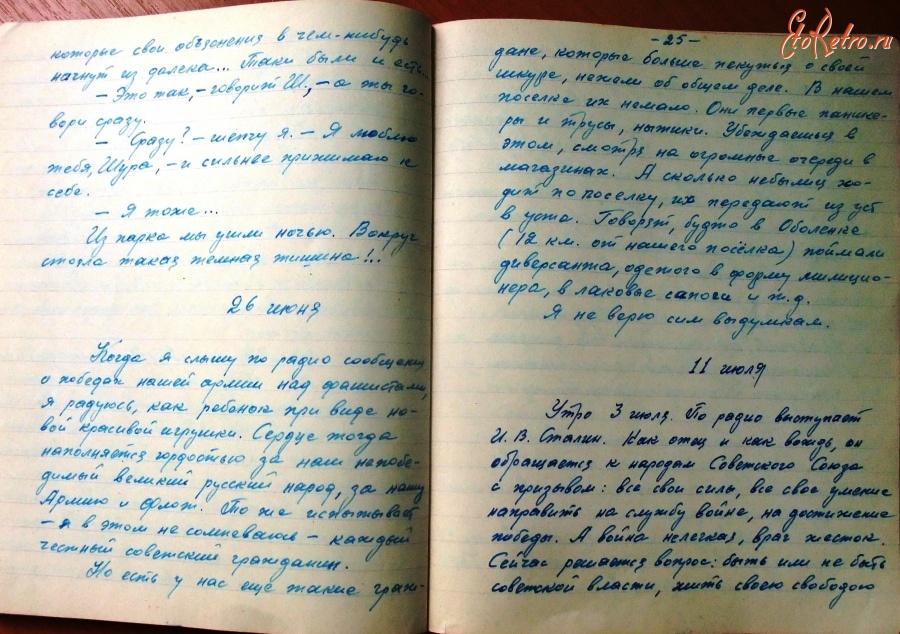 которые свои объяснения в чем-нибудь
начнут из далека... Таки были и есть...
– Это так, – говорит Ш., – а ты го-
вори сразу.
– Сразу? – шепчу я. – Я люблю
тебя, Шура, – и сильнее прижимаю к
себе.
– Я тоже...
Из парка мы ушли ночью. Вокруг
стояла такая темная тишина!..
26 июня
Когда я слышу по радио сообщения
о победах нашей армии над фашистами,
я радуюсь, как ребенок при виде но-
вой красивой игрушки. Сердце тогда
наполняется гордостью за наш непобе-
димый великий русский народ, за нашу
Армию и Флот. То же испытывает
– я в этом не сомневаюсь – каждый
честный советский гражданин.
Но есть у нас еще такие граж-
– 25 –
дане, которые больше пекутся о своей
шкуре, нежели об общем деле. В нашем
поселке их немало. Они первые панике-
ры и трусы, нытики. Убеждаешься в
этом, смотря на огромные очереди в
магазинах. А сколько небылиц хо-
дит по поселку, их передают из уст
в уста. Говорят, будто в Оболенке
(12 км. от нашего посёлка) поймали
диверсанта, одетого в форму милицио-
нера, в лаковые сапоги и т.д.
Я не верю сим выдумкам.
11 июля
Утро 3 июля. По радио выступает
И. В. Сталин. Как отец и как вождь, он
обращается к народам Советского Союза
с призывом: все свои силы, все свое умение
направить на службу войне, на достижение
победы. А война нелегкая, враг жесток.
Сейчас решается вопрос: быть или не быть
советской власти, жить своею свободою
EtoRetro.ru